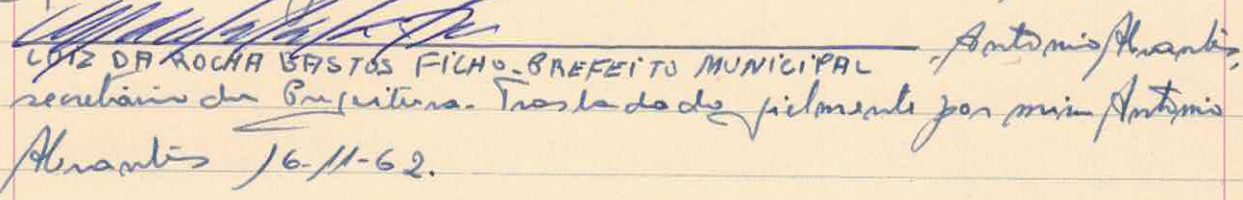 LUIZ DA ROCHA BASTOS FILHO - PREFEITO MUNICIPAL - Antonio Abrantes,
secretário da Prefeitura. Trasladado fielmente por mim Antonio
Abrantes 16-11-62.